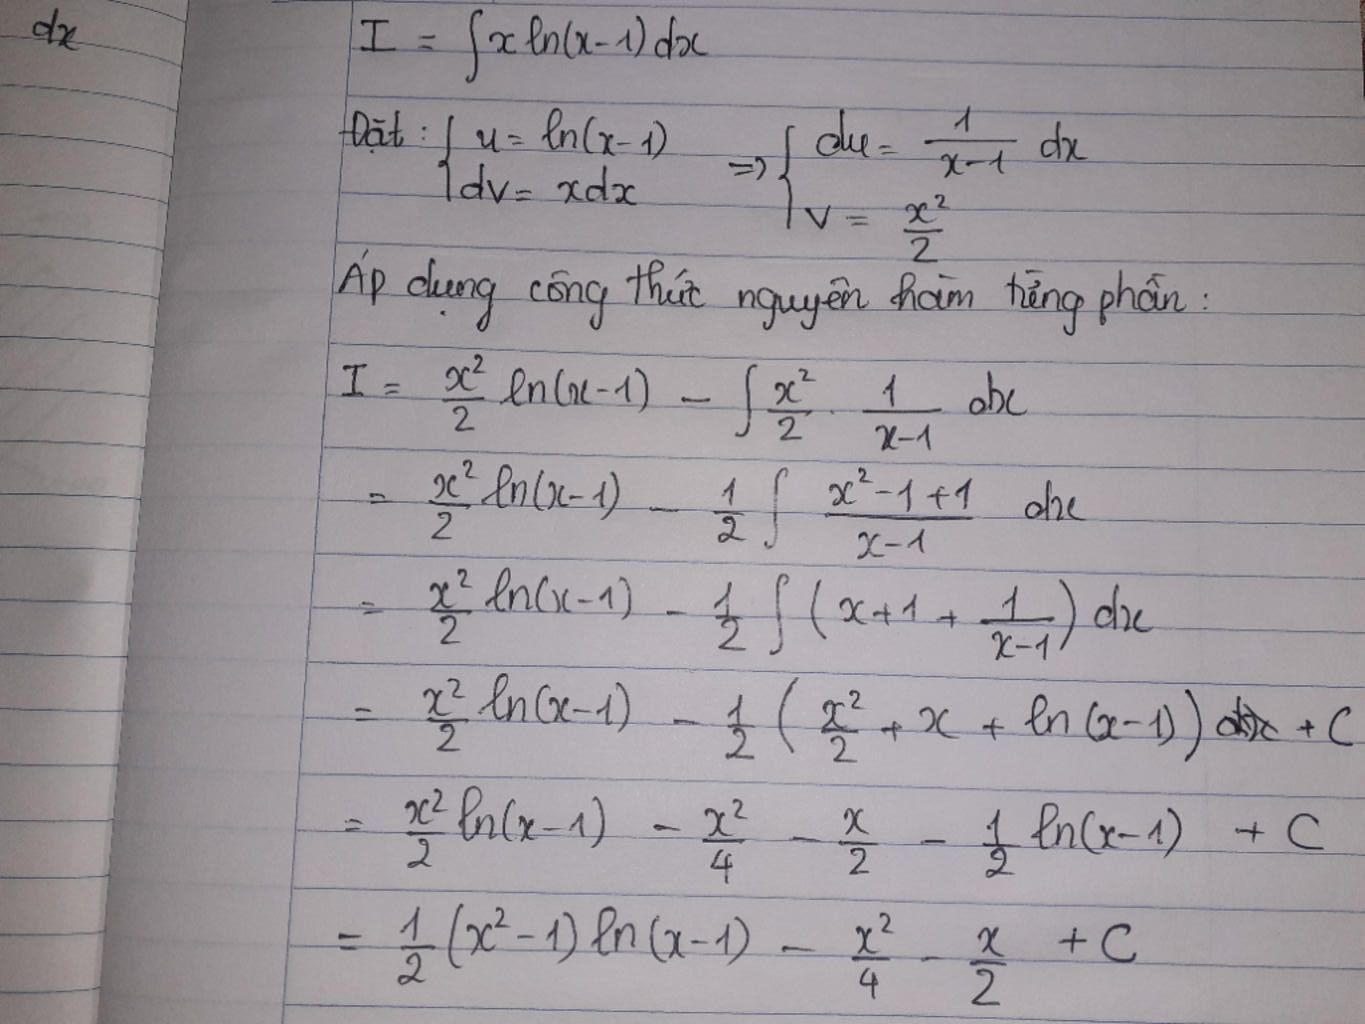 dx
I = ∫x ln(x-1) dx
Đặt: { u = ln(x-1) => { du = 1/(x-1) dx
dv = xdx
v = x²/2
Áp dụng công thức nguyên hàm từng phần:
I = x²/2 ln(x-1) - ∫ x²/2 . 1/(x-1) dx
= x²/2 ln(x-1) - 1/2 ∫ (x²-1+1)/(x-1) dx
= x²/2 ln(x-1) - 1/2 ∫ (x+1 + 1/(x-1)) dx
= x²/2 ln(x-1) - 1/2 (x²/2 + x + ln(x-1)) + C
= x²/2 ln(x-1) - x²/4 - x/2 - 1/2 ln(x-1) + C
= 1/2 (x²-1) ln(x-1) - x²/4 - x/2 + C